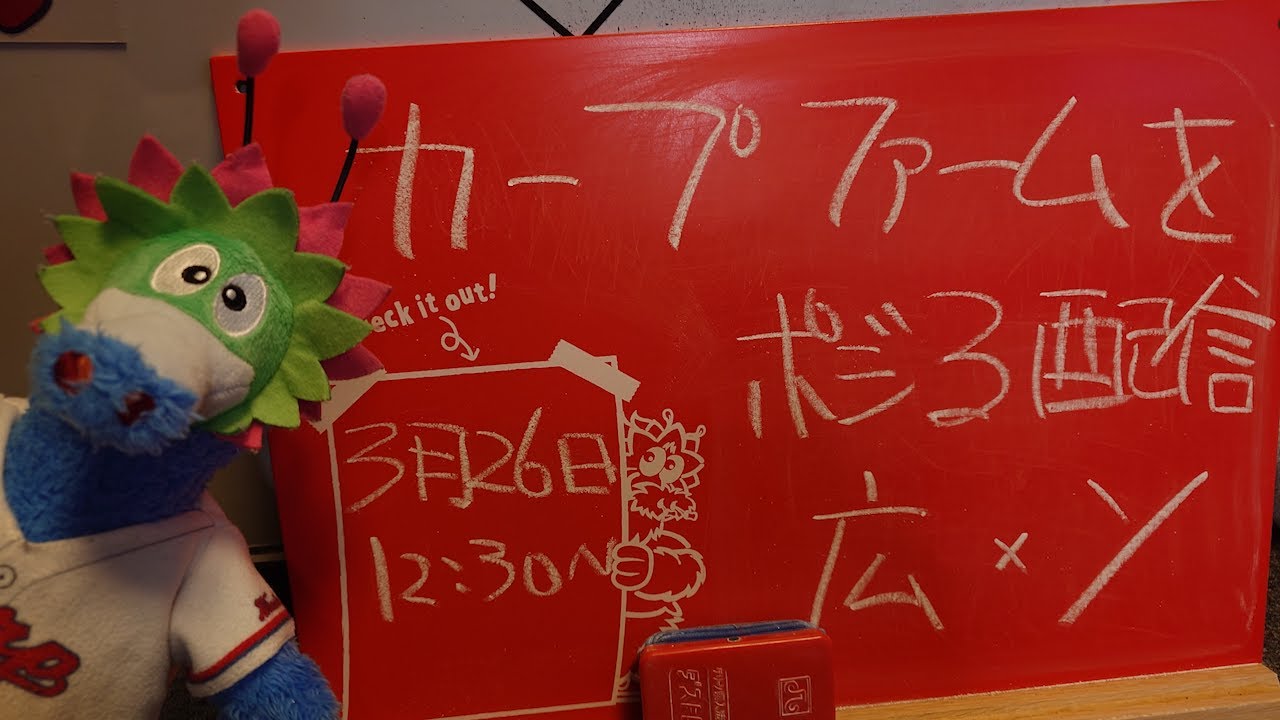 カープファームを
ポジる配信
広×ソ
eck it out!
3月26日
12:30〜